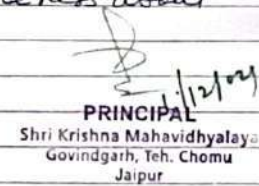 1/12/021
PRINCIPAL
Shri Krishna Mahavidhyalaya
Govindgarh, Teh. Chomu
Jaipur